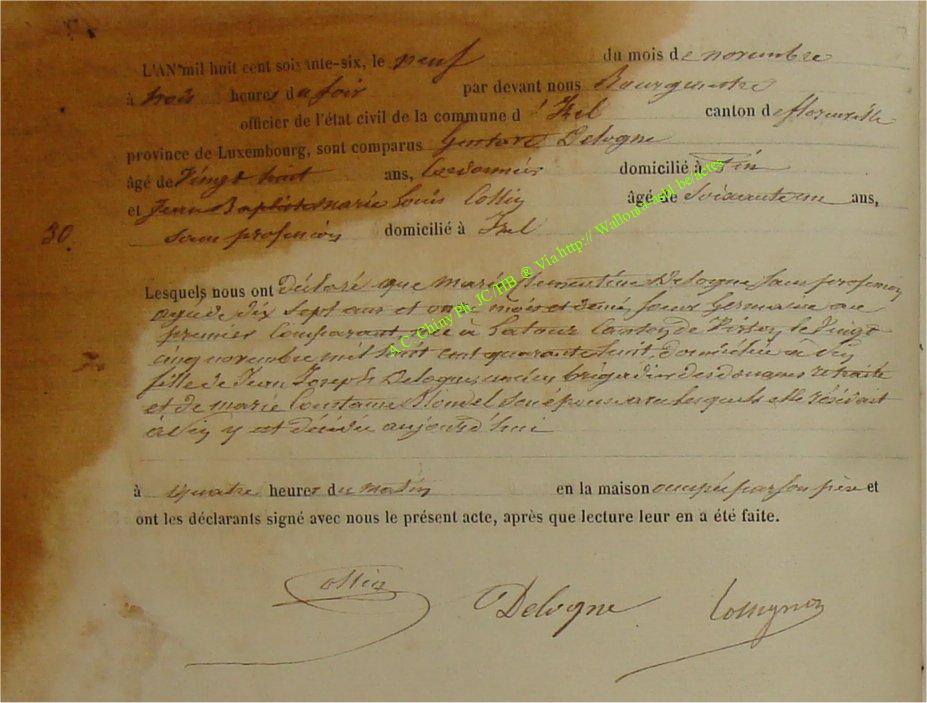 L'AN mil huit cent soixante-six, le neuf du mois de novembre
à trois heures du soir par devant nous Bourgmestre
officier de l'état civil de la commune d'Izel canton de florenville
province de Luxembourg, sont comparus Gustave Delogne
âgé de Vingt huit ans, Cordonnier domicilié à Pin
et Jean Baptiste marie Louis Collin âgé de Soixante un ans,
30. Sans profession domicilié à Izel
Lesquels nous ont déclaré que marie Clementine Delogne Sans profession
agée de dix Sept ans et onze mois et demi, Soeur Germaine au
premier Comparant née à Latour Canton de Virton le Vingt
cinq novembre mil huit cent quarante huit, domiciliée à Pin
fille de Jean Joseph Delogne ancien brigadier des douanes retraité
et de marie Constance Blondel Son epouse avec lesquels elle résidait
à Pin y est décédée aujourd'hui
à quatre heures du matin en la maison occupée par Son père et
ont les déclarants signé avec nous le présent acte, après que lecture leur en a été faite.
Collin Delogne
A.C. Chiny Ph. JC/HB ® Via http://Wallonia.bl.be.actes